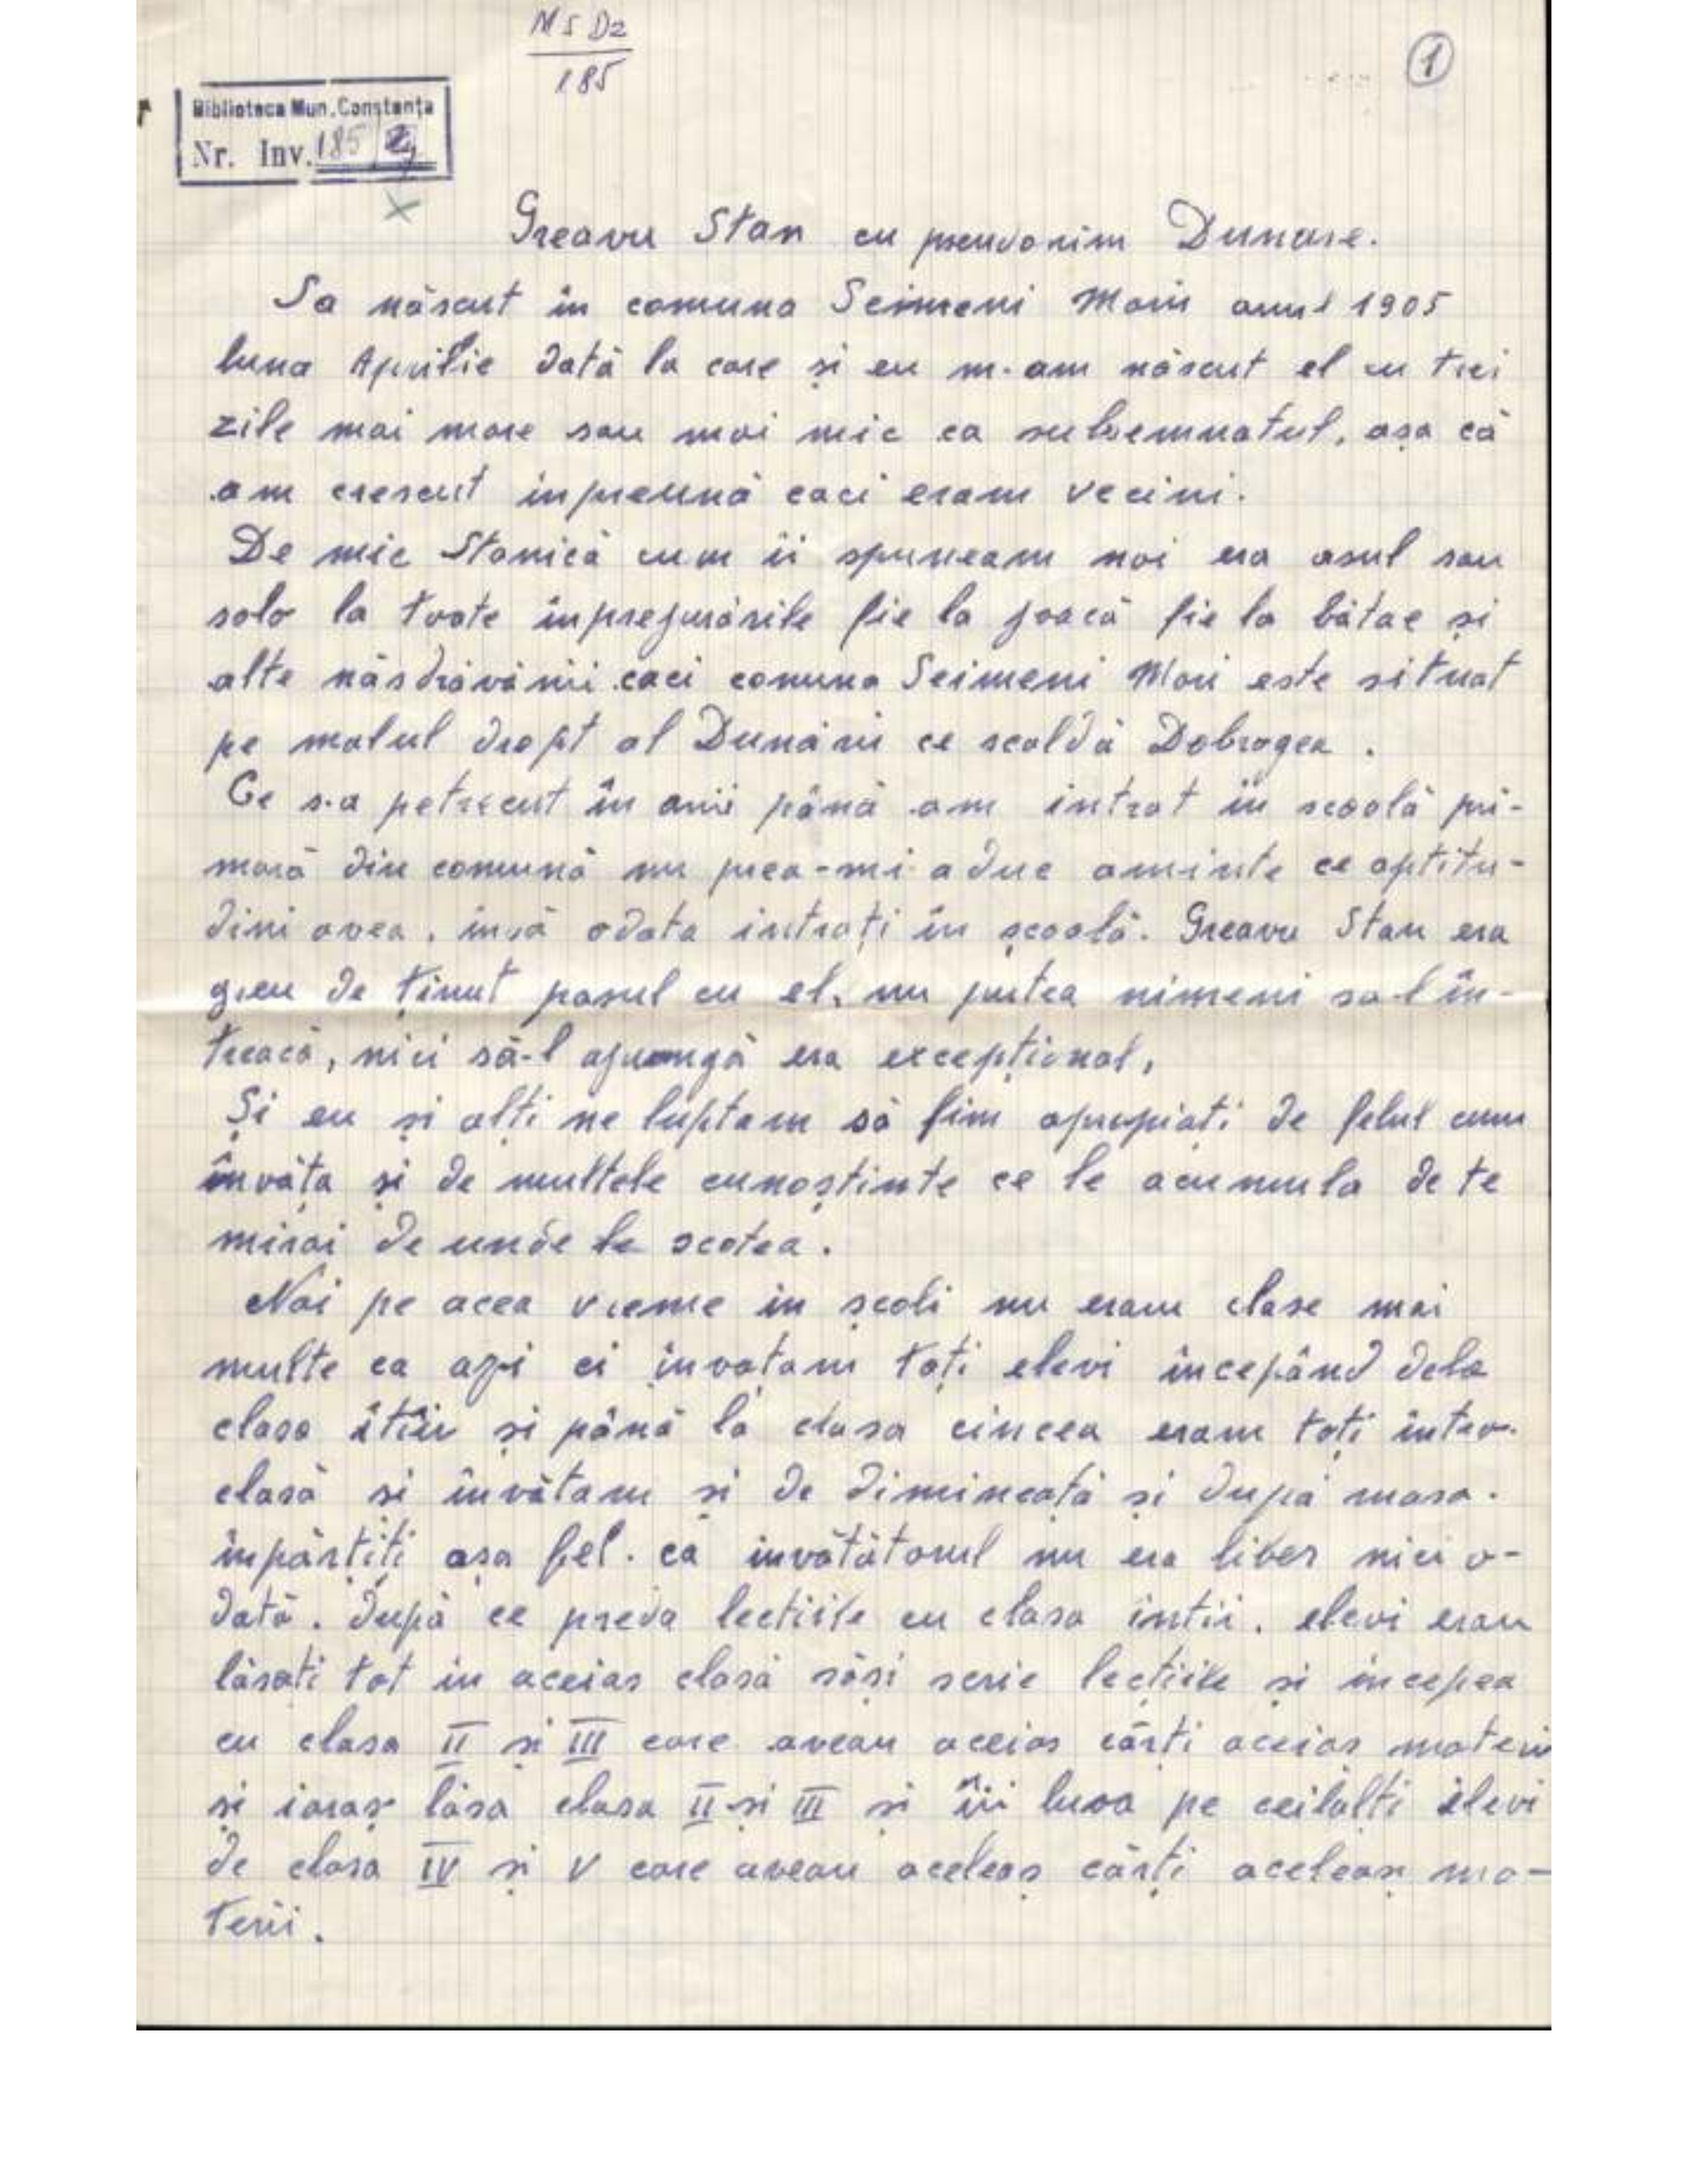 MS D2
185
1
Biblioteca Mun. Constanța
Nr. Inv. 185/2
Greavu Stan cu pseudonim Dunare.
Sa născut în comuna Seimeni Mari anul 1905
luna Aprilie dată la care și eu m-am născut el cu trei
zile mai mare sau mai mic ca subsemnatul, așa că
am crescut inpreună caci eram vecini.
De mic Stanică cum ii spuneam noi era asul sau
solo la toate inprejurările fie la joacă fie la bătae și
alte năsdrăvănii caci comuna Seimeni Mari este situat
pe malul drept al Dunării ce scaldă Dobrogea.
Ce s-a petrecut în anii până am intrat în scoolă pri-
mară din comună nu prea-mi aduc aminte ce aptitu-
dini avea, însă odata intrați în școală. Greavu Stan era
greu de ținut pasul cu el, nu putea nimeni sa-l în-
treacă, nici să-l ajungă era excepțional,
Și eu și alți ne luptam să fim apropiați de felul cum
învăța și de multele cunoștinte ce le acumula de te
mirai de unde le scotea.
Noi pe acea vreme in școli nu eram clase mai
multe ca azi ci invațam toți elevi incepând dela
clasa întîi și până la clasa cincea eram toți intro-
clasă si învătam si de dimineață si după masa.
inpărțiți așa fel. că invătătorul nu era liber nici o-
dată. După ce preda lectiile cu clasa intii. elevi erau
lăsati tot in aceias clasă săsi scrie lecțiile și incepea
cu clasa II și III care aveau aceias cărti aceias materii
și iaraș lăsa clasa II și III si îi lua pe ceilalti elevi
de clasa IV și V care aveau aceleaș cărți aceleasi ma-
terii.